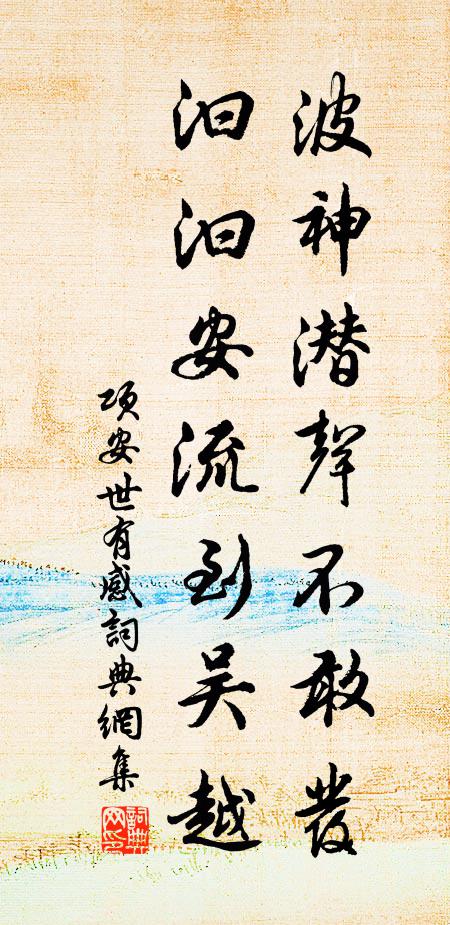 波神潜聲不敢發
汩汩安流到吴越
項安世有感詞典網集
詞典網印